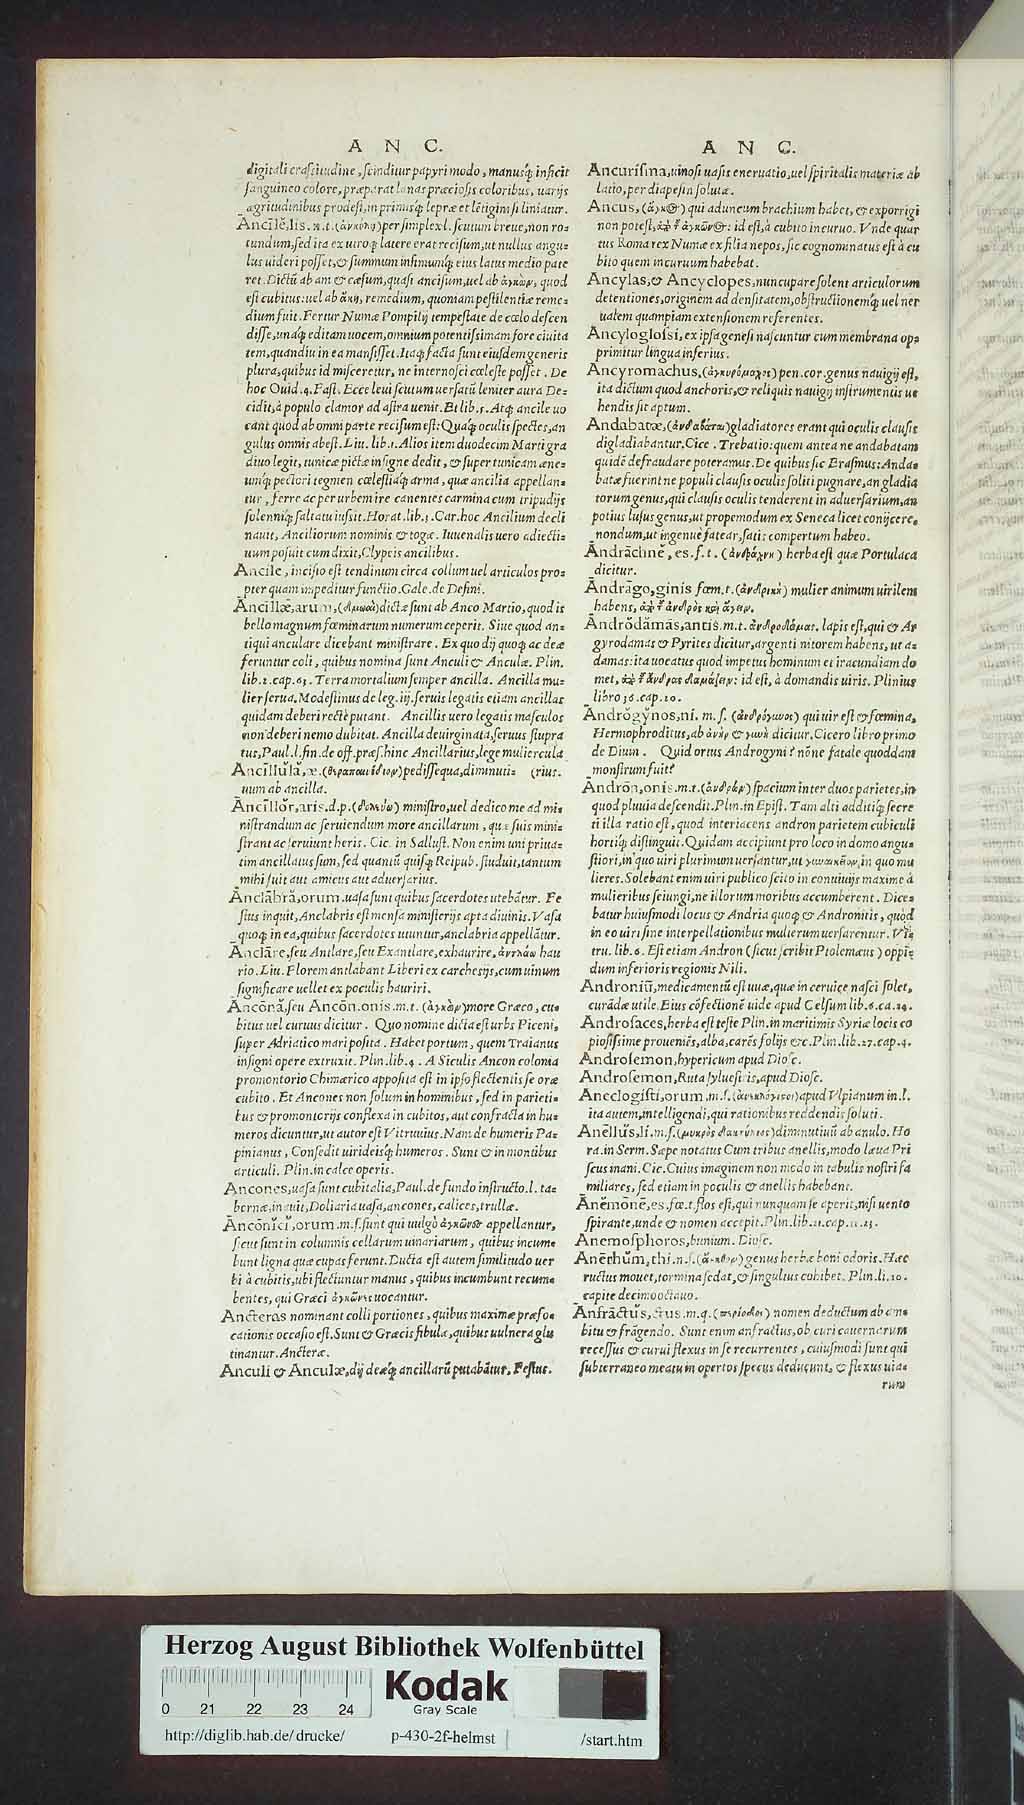 A N C.
digitali crassitudine, scinditur papyri modo, manusq́; inficit
sanguineo colore, præparat lanas præciosis coloribus, uarijs
ægritudinibus prodest, in primisq́; lepræ et lētigini si liniatur.
Ancīlĕ, lis. n.t. (ἀγκύλη) per simplex l. scutum breue, non ro=
tundum, sed ita ex utroq; latere erat recisum, ut nullus angu=
lus uideri posset, & summum infimumq́; eius latus medio pate
ret. Dictū ab am & cæsum, quasi ancisum, uel ab ἀγκὼν, quod
est cubitus: uel ab ἄκη, remedium, quoniam pestilentiæ reme=
dium fuit. Fertur Numæ Pompilij tempestate de cœlo descen
disse, unaq́; editam uocem, omnium potentissimam fore ciuita
tem, quandiu in ea mansisset. Itaq; facta sunt eiusdem generis
plura, quibus id misceretur, ne internosci cœleste posset. De
hoc Ouid. 4. Fast. Ecce leui scutum uersatū leniter aura De=
cidit, à populo clamor ad astra uenit. Et lib. 5. Atq; ancile uo
cant quod ab omni parte recisum est: Quaq́; oculis spectes, an
gulus omnis abest. Liu. lib. 1. Alios item duodecim Marti gra
diuo legit, tunicæ pictæ insigne dedit, & super tunicam æne=
umq́; pectori tegmen cœlestiaq́; arma, quæ ancilia appellan=
tur, ferre ac per urbem ire canentes carmina cum tripudijs
solenniq́; saltatu iussit. Horat. lib. 3. Car. hoc Ancilium decli
nauit, Anciliorum nominis & togæ. Iuuenalis uero adiecti=
uum posuit cum dixit, Clypeis ancilibus.
Ancile, incisio est tendinum circa collum uel articulos pro=
pter quam impeditur functio. Gale. de Defini.
Ancīllæ, arum, (δμωαὶ) dictæ sunt ab Anco Martio, quod is
bello magnum fœminarum numerum ceperit. Siue quod an=
tiqui anculare dicebant ministrare. Ex quo dij quoq; ac deæ
feruntur coli, quibus nomina sunt Anculi & Anculæ. Plin.
lib. 2. cap. 63. Terra mortalium semper ancilla. Ancilla mu=
lier serua. Modestinus de leg. iij. seruis legatis etiam ancillas
quidam deberi rectè putant. Ancillis uero legatis masculos
non deberi nemo dubitat. Ancilla deuirginata, seruus stupra
tus, Paul. l. fin. de off. præs. hinc Ancillarius, lege muliercula
Ancīllŭlă, æ. (θεραπαινίδιον) pedissequa, diminuti= (rius.
uum ab ancilla.
Ancīllŏr, aris. d.p. (δουλεύω) ministro, uel dedico me ad mi=
nistrandum ac seruiendum more ancillarum, quæ suis mini=
strant ac seruiunt heris. Cic. in Sallust. Non enim uni priua=
tim ancillatus sum, sed quantū quisq; Reipub. studuit, tantum
mihi fuit aut amicus aut aduersarius.
Anclābră, orum. uasa sunt quibus sacerdotes utebātur. Fe
stus inquit, Anclabris est mensa ministerijs apta diuinis. Vasa
quoq; in ea, quibus sacerdotes utuntur, anclabria appellātur.
Anclāre, seu Antlare, seu Exantlare, exhaurire, ἀντλάω hau
rio. Liu. Florem antlabant Liberi ex carchesijs, cum uinum
significare uellet ex poculis hauriri.
Ancōnă, seu Ancōn. onis. m.t. (ἀγκὼν) more Græco, cu=
bitus uel curuus dicitur. Quo nomine dicta est urbs Piceni,
super Adriatico mari posita. Habet portum, quem Traianus
insigni opere extruxit. Plin. lib. 4. A Siculis Ancon colonia
promontorio Chimærico apposita est in ipso flectentis se oræ
cubito. Et Ancones non solum in hominibus, sed in parieti=
bus & promontorijs conflexa in cubitos, aut confracta in hu=
meros dicuntur, ut autor est Vitruuius. Nam de humeris Pa=
pinianus, Consedit uirideisq́; humeros. Sunt & in montibus
articuli. Plin. in calce operis.
Ancones, uasa sunt cubitalia, Paul. de fundo instructo. l. ta=
bernæ, inquit, Doliaria uasa, ancones, calices, trullæ.
Ancōnĭcĭ, orum. m.s. sunt qui uulgò ἀγκῶνες appellantur,
sicut sunt in columnis cellarum uinariarum, quibus incum=
bunt ligna quæ cupas ferunt. Ducta est autem similitudo uer
bi à cubitis, ubi flectuntur manus, quibus incumbunt recum=
bentes, qui Græci ἀγκῶνες uocantur.
Ancteras nominant colli portiones, quibus maximæ præfo=
cationis occasio est. Sunt & Græcis fibulæ, quibus uulnera glu
tinantur. Ancteræ.
Anculi & Anculæ, dij deæq́; ancillarū putabātur, Festus.
A N C.
Ancurisina, uinosi uasis eneruatio, uel spiritalis materiæ ab
latio, per diapesin solutæ.
Ancus, (ἄγκος) qui aduncum brachium habet, & exporrigi
non potest, ἀπὸ τ ἀγκῶνος: id est, à cubito incuruo. Vnde quar
tus Romæ rex Numæ ex filia nepos, sic cognominatus est à cu
bito quem incuruum habebat.
Ancylas, & Ancyclopes, nuncupare solent articulorum
detentiones, originem ad densitatem, obstructionemq́; uel ner
uatem quampiam extensionem referentes.
Ancyloglossi, ex ipsa genesi nascuntur cum membrana op=
primitur lingua inferius.
Ancyromachus, (ἀγκυρόμαχος) pen. cor. genus nauigij est,
ita dictum quod anchoris, & reliquis nauigij instrumentis ue
hendis sit aptum.
Andabatæ, (ἀνδαβάται) gladiatores erant qui oculis clausis
digladiabantur. Cice. Trebatio: quem antea ne andabatam
quidē defraudare poteramus. De quibus sic Erasmus: Anda=
batæ fuerint ne populi clausis oculis soliti pugnare, an gladia
torum genus, qui clausis oculis tenderent in aduersarium, an
potius lusus genus, ut propemodum ex Seneca licet conijcere,
nondum, ut ingenuè fatear, satis compertum habeo.
Andrāchnĕ, es. f.t. (ἀνδράχνη) herba est quæ Portulaca
dicitur.
Andrāgo, ginis fœm. t. (ἀνδρικὴ) mulier animum uirilem
habens, ἀπὸ τ ἀνδρὸς καὶ ἄγειν.
Andrŏdămās, antis. m.t. ἀνδροδάμας. lapis est, qui & Ar
gyrodamas & Pyrites dicitur, argenti nitorem habens, ut a=
damas: ita uocatus quod impetus hominum et iracundiam do
met, ἀπὸ τ ἄνδρας δαμάζειν: id est, à domandis uiris. Plinius
libro 36. cap. 20.
Andrŏgy̆nos, ni. m.s. (ἀνδρόγυνος) qui uir est & fœmina,
Hermophroditus, ab ἀνὴρ & γυνὴ dicitur. Cicero libro primo
de Diuin. Quid ortus Androgyni? nōne fatale quoddam
monstrum fuit?
Andrōn, onis. m.t. (ἀνδρών) spacium inter duos parietes, in
quod pluuia descendit. Plin. in Epist. Tam alti additiq́; secre
ti illa ratio est, quod interiacens andron parietem cubiculi
hortiq́; distinguit. Quidam accipiunt pro loco in domo angu=
stiori, in quo uiri plurimum uersantur, ut γυναικεῖον, in quo mu
lieres. Solebant enim uiri publico scito in conuiuijs maxime à
mulieribus seiungi, ne illorum moribus accumberent. Dice=
batur huiusmodi locus & Andria quoq; & Andronitis, quòd
in eo uiri sine interpellationibus mulierum uersarentur. Vi=
tru. lib. 6. Est etiam Andron (sicut scribit Ptolemæus) oppi=
dum inferioris regionis Nili.
Androniū, medicamentū est uuæ, quæ in ceruice nasci solet,
curādæ utile. Eius cōfectionē uide apud Celsum lib. 6. ca. 14.
Androsaces, herba est teste Plin. in maritimis Syriæ locis co
piosissime proueniēs, alba, carēs folijs &c. Plin. lib. 27. cap. 4.
Androsemon, hypericum apud Diosc.
Androsemon, Ruta syluestris, apud Diosc.
Aneclogisti, orum. m.s. (ἀνεκλόγιστοι) apud Vlpianum in. l.
ita autem, intelligendi, qui rationibus reddendis soluti.
Anēllŭs, li. m.s. (μικρὸς δακτύλιος) diminutiuū ab anulo. Ho
ra. in Serm. Sæpe notatus Cum tribus anellis, modo læua Pri
scus inani. Cic. Cuius imaginem non modo in tabulis nostri fa
miliares, sed etiam in poculis & anellis habebant.
Anĕmōnē, es. fœ. t. flos est, qui nunquam se aperit, nisi uento
spirante, unde & nomen accepit. Plin. lib. 21. cap. 11. 23.
Anemosphoros, bunium. Diosc.
Anēthŭm, thi. n.s. (ἄνηθον) genus herbæ boni odoris. Hæc
ructus mouet, tormina sedat, & singultus cohibet. Plin. li. 20.
capite decimooctauo.
Anfrāctŭs, ctus. m.q. (περίοδος) nomen deductum ab am=
bitu & frāgendo. Sunt enim anfractus, ob curi cauernarum
recessus & curui flexus in se recurrentes, cuiusmodi sunt qui
subterraneo meatu in opertos specus deducunt, & flexus uia=
rum
Herzog August Bibliothek Wolfenbüttel
0 21 22 23 24
Kodak
Gray Scale
http://diglib.hab.de/drucke/ p-430-2f-helmst /start.htm